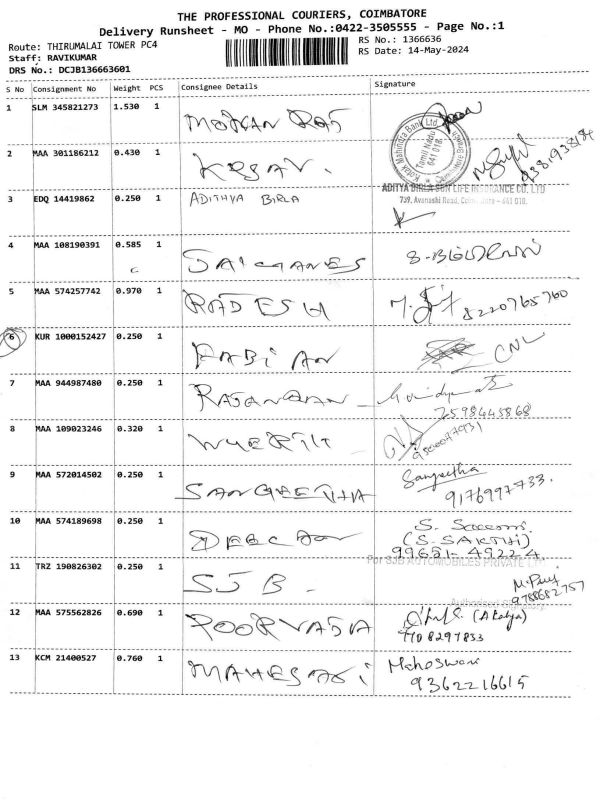 THE PROFESSIONAL COURIERS, COIMBATORE
Delivery Runsheet - MO - Phone No.:0422-3505555 - Page No.:1
Route: THIRUMALAI TOWER PC4
RS No.: 1366636
Staff: RAVIKUMAR
RS Date: 14-May-2024
DRS No.: DCJB136663601
S No Consignment No Weight PCS Consignee Details Signature
1 SLM 345821273 1.530 1 MOHAN RAJ
Kotak Mahindra Bank Ltd. Tamil Nadu 641 018.
2 MAA 301186212 0.430 1
3 EDQ 14419862 0.250 1 ADITHYA BIRLA
ADITYA BIRLA SUN LIFE INSURANCE CO. LTD
739, Avanashi Road, - 641 018.
4 MAA 108190391 0.585 1 SAI GANES
5 MAA 574257742 0.970 1 RADESH 8220765760
6 KUR 1000152427 0.250 1 FABIAN CNL
7 MAA 944987480 0.250 1
7598445868
8 MAA 109023246 0.320 1
9 MAA 572014502 0.250 1 SANGEETHA Sangeetha
9176997733.
10 MAA 574189698 0.250 1
(S. SAKTHI)
99651-49224
11 TRZ 190826302 0.250 1 SJB.
For SJB AUTOMOBILES PRIVATE
9788682757
12 MAA 575562826 0.690 1 POORVAJA
13 KCM 21400527 0.760 1 MAHESARI
9362216615